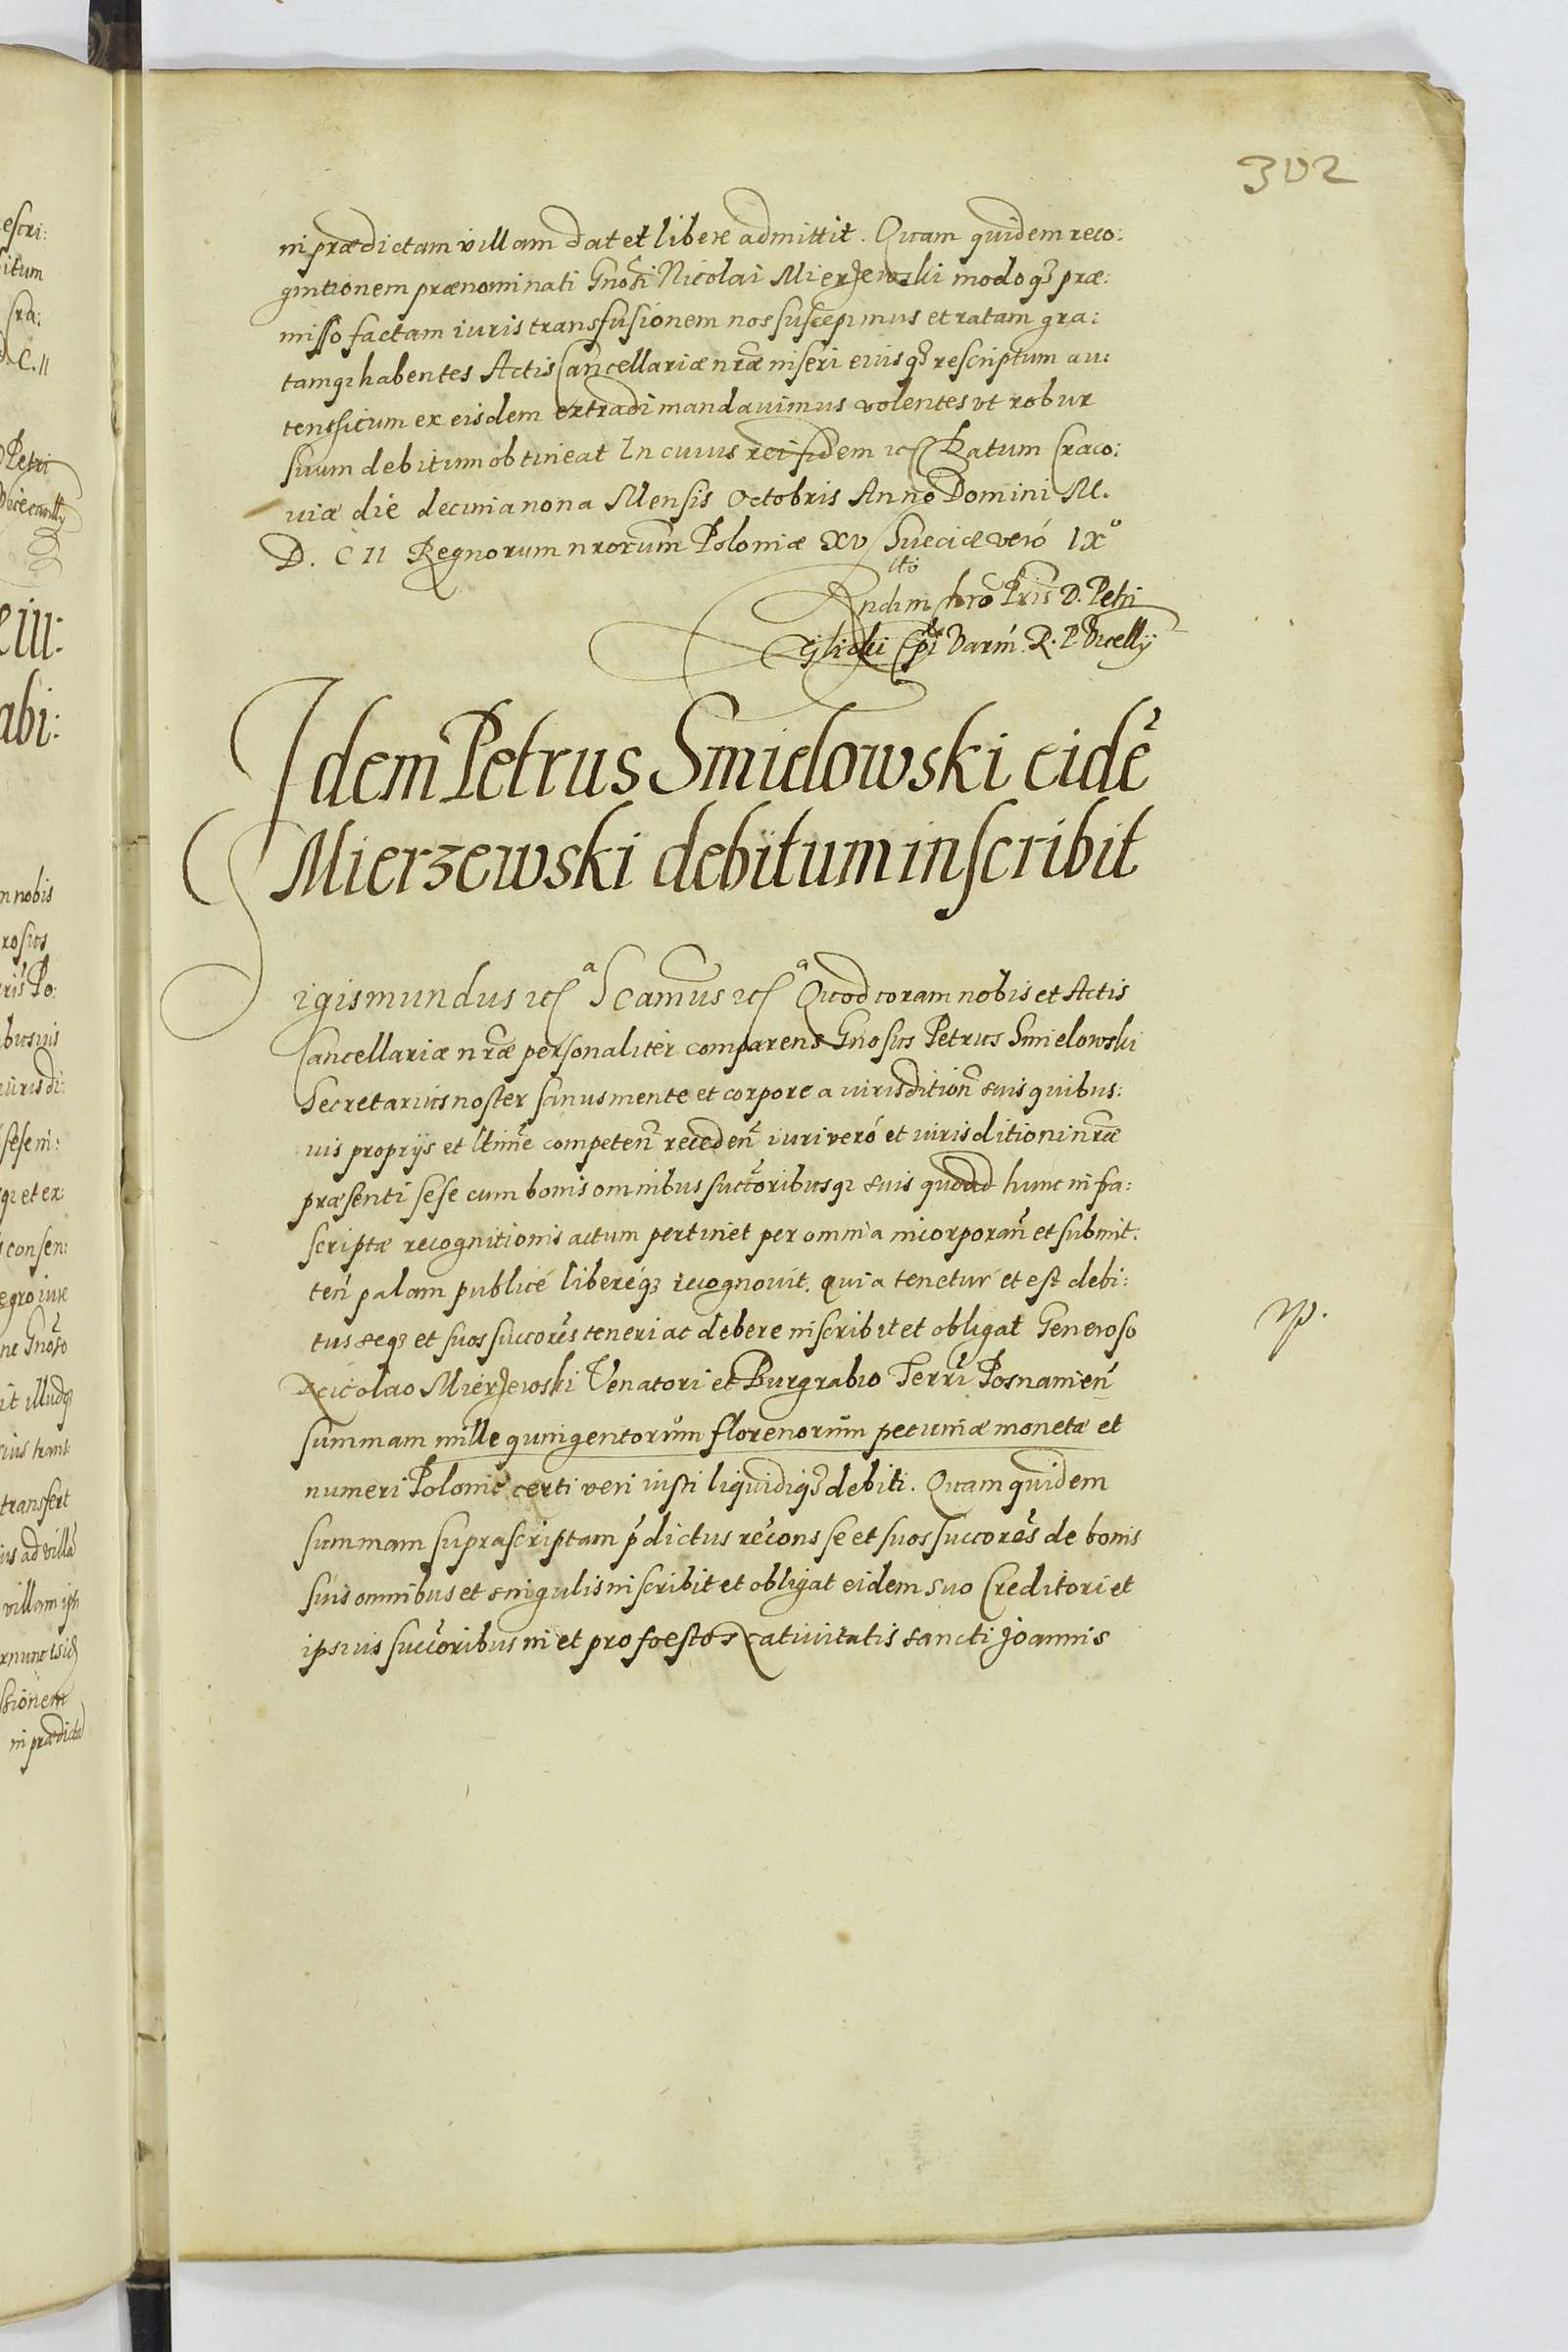 302
in prædictam villam dat et libere admittit. Quam quidem reco:
gnitionem prænominati Gnosi Nicolai Mierzewski modoq3 præ:
misso factam iuris transfusionem nos suscepimus et ratam gra:
tamq3 habentes Actis Cancellariæ nræ inseri eiusq3 rescriptum au:
tenticum ex eisdem extradi mandavimus volentes ut robur
suum debitum obtineat In cuius rei fidem etc Datum Craco:
viæ die decima nona Mensis Octobris Anno Domini M.
D. C II Regnorum nrorum Poloniæ XV Sueciæ veró IXº
D. Petri
Varm. R. P. Vicelly
Idem Petrus Smielowski eidē
Mierzewski debitum inscribit
Sigismundus etc a Scamus etc a Quod coram nobis et Actis
Cancellariæ nræ personaliter comparens Gnosus Petrus Smielowski
Secretarius noster sanus mente et corpore a iurisdition suis quibus:
vis proprijs et ltime competen receden iuri veró et iurisditioni nræ
præsenti sese cum bonis omnibus succoribusq3 suis quoad hunc infra:
scriptæ recognitionis actum pertinet per omnia incorporan et submit:
ten palam publicé liberéq3 recognovit. quia tenetur et est debi:
tus seq3 et suos succores teneri ac debere inscribit et obligat Generoso
Nicolao Mierzewski Venatori et Burgrabio Terræ Posnanien
summam mille quingentorum florenorum pecuniæ monetæ et
numeri Polonic certi veri iusti liquidiq3 debiti. Quam quidem
summam suprascriptam p dictus recons se et suos succores de bonis
suis omnibus et singulis inscribit et obligat eidem suo Creditori et
ipsius succoribus in et pro foesto Nativitatis sancti Joannis